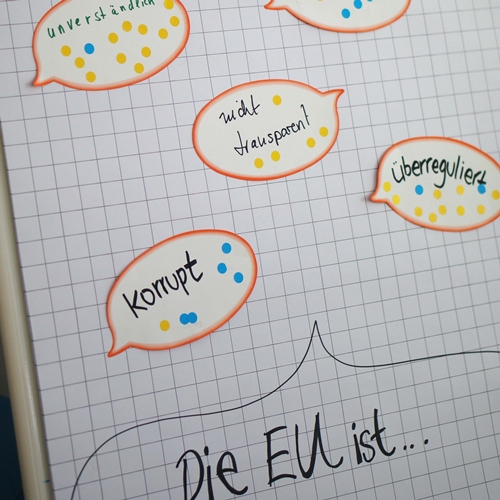 unverständlich
nicht
transparent
überreguliert
korrupt
Die EU ist...